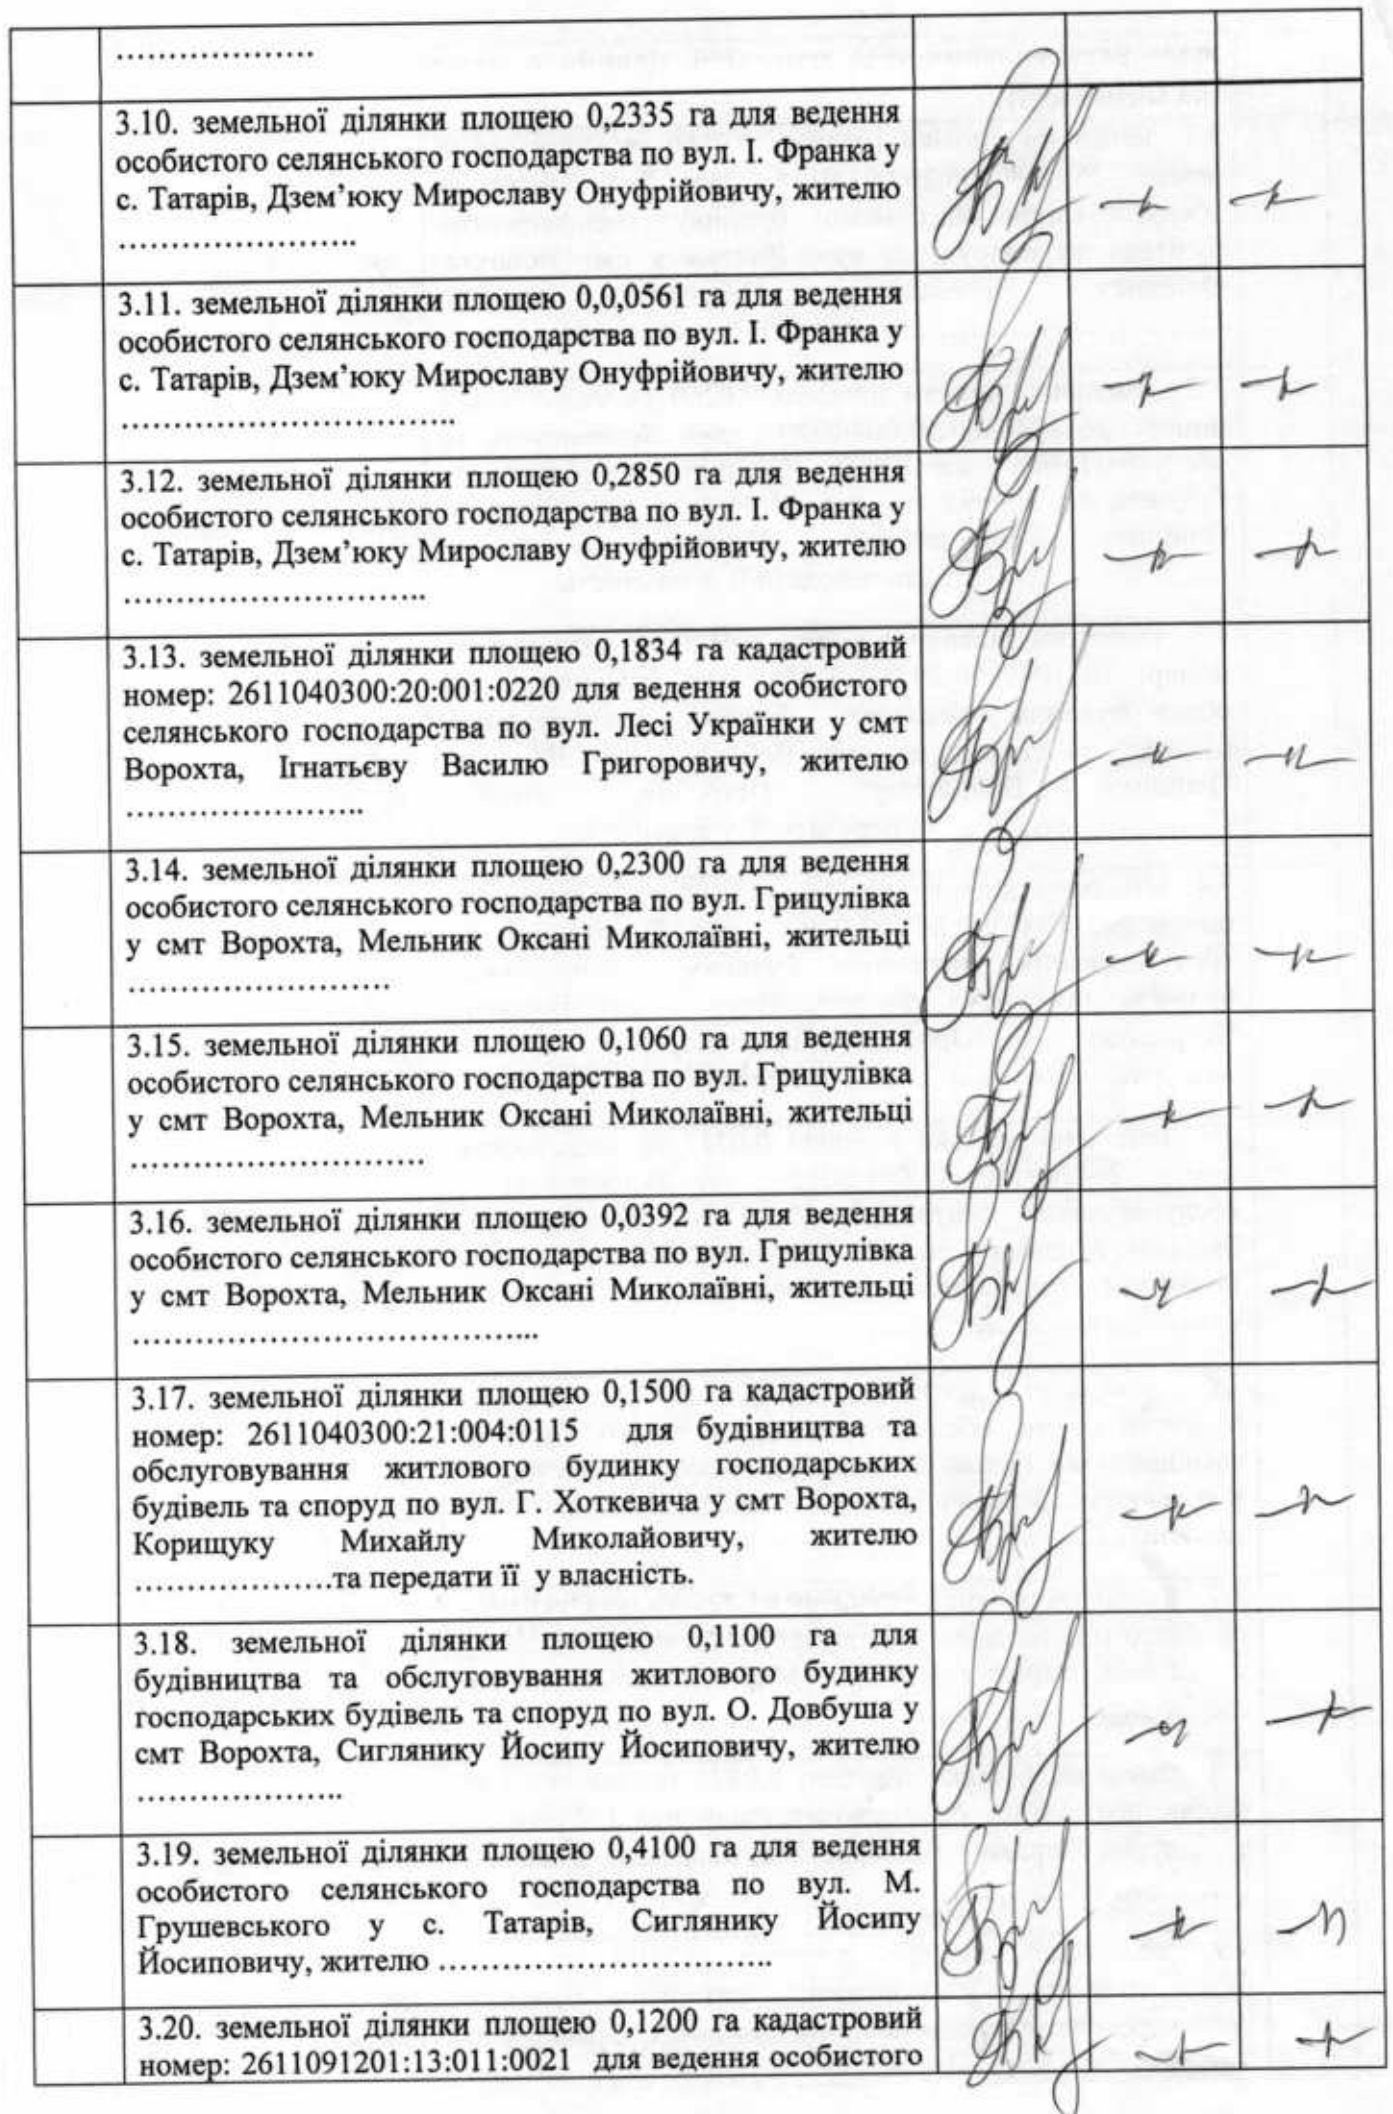 ....................
3.10. земельної ділянки площею 0,2335 га для ведення
особистого селянського господарства по вул. І. Франка у
с. Татарів, Дзем’юку Мирославу Онуфрійовичу, жителю
........................
3.11. земельної ділянки площею 0,0,0561 га для ведення
особистого селянського господарства по вул. І. Франка у
с. Татарів, Дзем’юку Мирославу Онуфрійовичу, жителю
..................................
3.12. земельної ділянки площею 0,2850 га для ведення
особистого селянського господарства по вул. І. Франка у
с. Татарів, Дзем’юку Мирославу Онуфрійовичу, жителю
...............................
3.13. земельної ділянки площею 0,1834 га кадастровий
номер: 2611040300:20:001:0220 для ведення особистого
селянського господарства по вул. Лесі Українки у смт
Ворохта, Ігнатьєву Василю Григоровичу, жителю
........................
3.14. земельної ділянки площею 0,2300 га для ведення
особистого селянського господарства по вул. Грицулівка
у смт Ворохта, Мельник Оксані Миколаївні, жительці
...........................
3.15. земельної ділянки площею 0,1060 га для ведення
особистого селянського господарства по вул. Грицулівка
у смт Ворохта, Мельник Оксані Миколаївні, жительці
..............................
3.16. земельної ділянки площею 0,0392 га для ведення
особистого селянського господарства по вул. Грицулівка
у смт Ворохта, Мельник Оксані Миколаївні, жительці
.........................................
3.17. земельної ділянки площею 0,1500 га кадастровий
номер: 2611040300:21:004:0115 для будівництва та
обслуговування житлового будинку господарських
будівель та споруд по вул. Г. Хоткевича у смт Ворохта,
Корищуку Михайлу Миколайовичу, жителю
....................та передати її у власність.
3.18. земельної ділянки площею 0,1100 га для
будівництва та обслуговування житлового будинку
господарських будівель та споруд по вул. О. Довбуша у
смт Ворохта, Сиглянику Йосипу Йосиповичу, жителю
.....................
3.19. земельної ділянки площею 0,4100 га для ведення
особистого селянського господарства по вул. М.
Грушевського у с. Татарів, Сиглянику Йосипу
Йосиповичу, жителю ..................................
3.20. земельної ділянки площею 0,1200 га кадастровий
номер: 2611091201:13:011:0021 для ведення особистого